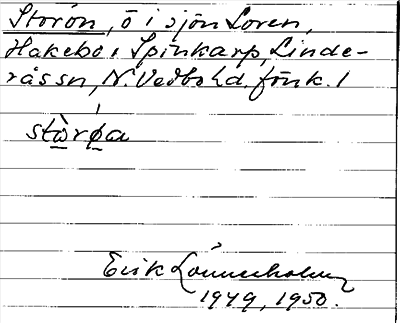 Storön, ö i sjön Loren,
Hakebo, Spinkarp, Linde-
råssn, N. Vedbo hd. Jönk. l
stòrǿa
Erik Lönnerholm
1949, 1950.